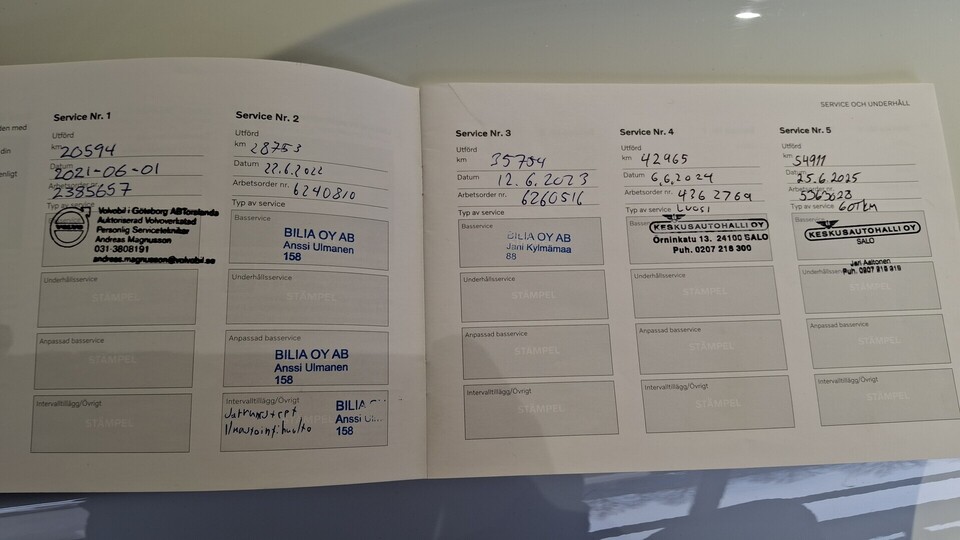 ten med
din
enligt
Service Nr. 1
Utförd
km 20594
Datum 2021-06-01
Arbetsorder nr. 2385657
Typ av service
VOLVO
Volvobil i Göteborg AB Torslanda
Auktoriserad Volvoverkstad
Personlig Servicetekniker
Andreas Magnusson
031-3808191
andreas.magnusson@volvobil.se
Underhållsservice
STÄMPEL
Anpassad basservice
STÄMPEL
Intervalltillägg/Övrigt
STÄMPEL
Service Nr. 2
Utförd
km 28753
Datum 22.6.2022
Arbetsorder nr. 6240810
Typ av service
Basservice
BILIA OY AB
Anssi Ulmanen
158
Underhållsservice
STÄMPEL
Anpassad basservice
BILIA OY AB
Anssi Ulmanen
158
Intervalltillägg/Övrigt
Ilmastointihuolto
BILIA
Anssi
158
SERVICE OCH UNDERHÅLL
Service Nr. 3
Utförd
km 35754
Datum 12.6.2023
Arbetsorder nr. 6260516
Typ av service
Basservice
BILIA OY AB
Jani Kylmämaa
88
Underhållsservice
STÄMPEL
Anpassad basservice
STÄMPEL
Intervalltillägg/Övrigt
STÄMPEL
Service Nr. 4
Utförd
km 42965
Datum 6.6.2024
Arbetsorder nr. 4362769
Typ av service Vuosi
KESKUSAUTOHALLI OY
Örninkatu 13. 24100 SALO
Puh. 0207 215 300
Underhållsservice
STÄMPEL
Anpassad basservice
STÄMPEL
Intervalltillägg/Övrigt
STÄMPEL
Service Nr. 5
Utförd
km 54911
Datum 25.6.2025
Arbetsorder nr.
Typ av service 60TKM
KESKUSAUTOHALLI OY
SALO
Jari Aaltonen
Underhållsservice
STÄMPEL
Anpassad basservice
STÄMPEL
Intervalltillägg/Övrigt
STÄMPEL